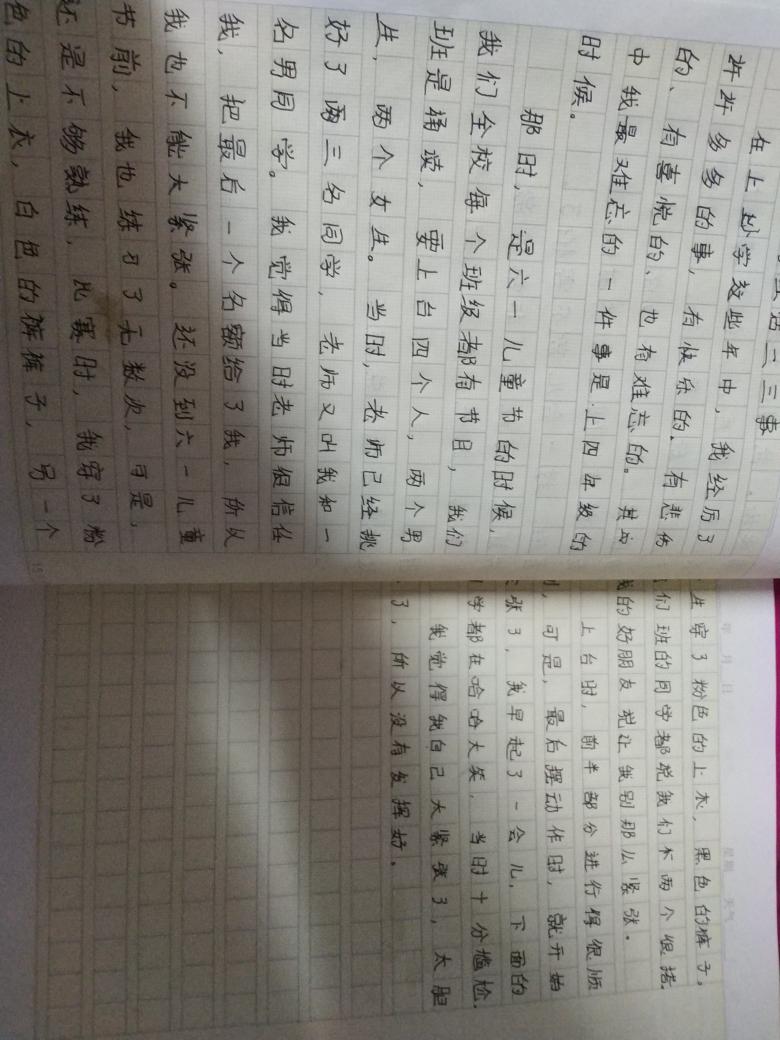 生活二三事
在上小学这些年中，我经历了
许许多多的事，有快乐的、有悲伤
的、有喜悦的、也有难忘的。其
中我最难忘的一件事是上四年级的
时候。
那时，是六一儿童节的时候，
我们全校每个班级都有节目，我们
班是诵读，要上台四个人，两个男
生，两个女生。当时，老师已经挑
好了两三名同学，老师又叫我和一
名男同学。我觉得当时老师很信任
我，把最后一个名额给了我，所以
我也不能大紧张。还没到六一儿童
书前，我也练习了无数次，可是，
还是不够熟练，比赛时，我穿了粉
色的上衣，白色的裤裤子，另一个
生穿了粉色的上衣，黑色的裤子。
们班的同学都说我们不两个很搭。
我的好朋友说让我别那么紧张。
上台时，前半部分进行得很顺
利，可是，最后摆动作时，就开始
张了，我早起了一会儿，下面的
学都在哈哈大笑，当时十分尴尬。
我觉得我自己大紧张了，太胆
了，所以没有发挥好。
15
年 月 日
星期 天气